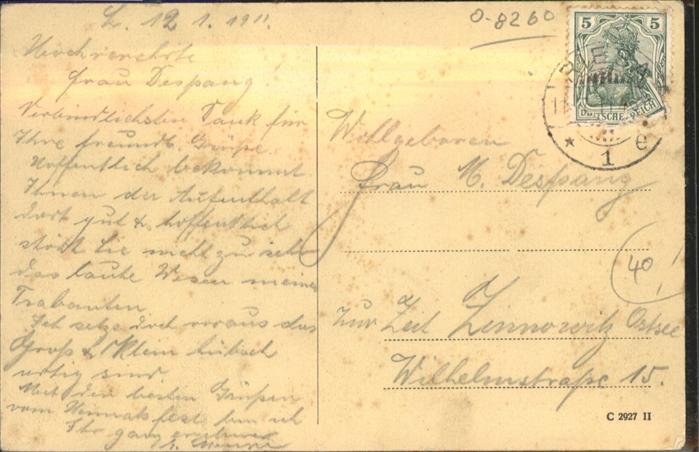 L. 12 1. 1911.
O-8260
Hochverehrte
Frau Despang
Verbindlichsten Dank für
Ihre freundl. Grüße
Hoffentlich bekommt
Ihnen der Aufenthalt
dort gut & hoffentlich
stört Sie nicht zu sehr
das laute Wesen meiner
Trabanten
Ich setze doch voraus das
Groß & Klein hübsch
artig sind.
Mit den besten Grüßen
vom ich
Ihr ganz ergebener
5 5
DEUTSCHES REICH
* 1 e
Wohlgeboren
Frau M. Despang
40
zur Zeit Zinnowitz Ostsee
Wilhelmstraße 15.
C 2927 II